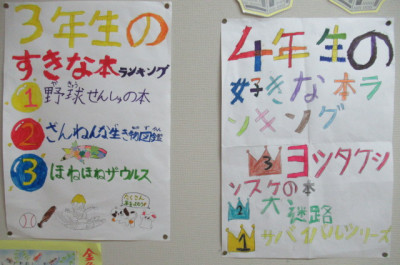 3年生の
すきな本ランキング
1 野球せんしゅの本
2 ざんねんな生き物図鑑
3 ほねほねザウルス
4年生の
好きな本ラ
ンキング
3 ヨシタケシ
ンスケの本
2 大迷路
1 サバイバルシリーズ